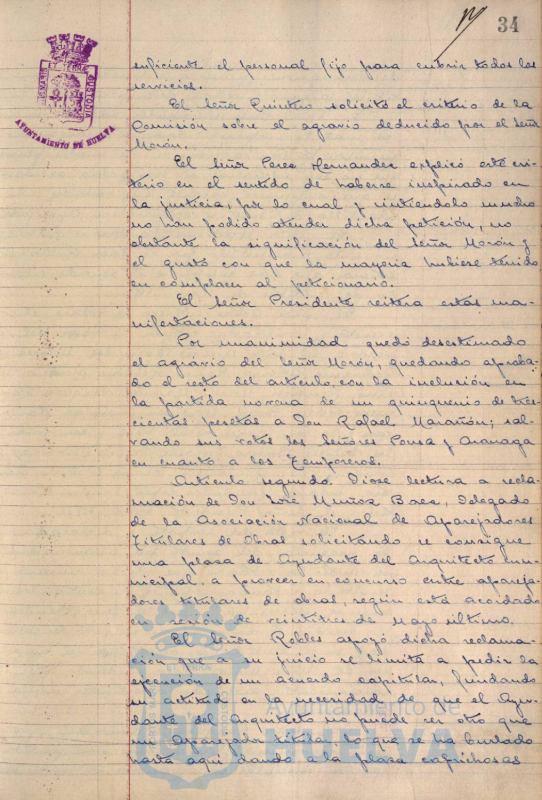 34
AYUNTAMIENTO DE HUELVA
suficiente el personal fijo para cubrir todos los
servicios.
El Señor Quintero solicitó el criterio de la
Comisión sobre el agravio deducido por el Señor
Morón.
El Señor Perez Hernandez explicó este cri-
terio en el sentido de haberse inspirado en
la justicia, por lo cual y sintiendolo mucho
no han podido atender dicha petición, no
obstante la significación del Señor Morón y
el gusto con que la mayoria hubiese tenido
en complacer al peticionario.
El Señor Presidente reitera estas ma-
nifestaciones.
Por unanimidad quedó desestimado
el agravio del Señor Morón, quedando aproba-
do el resto del articulo, con la inclusión en
la partida novena de un quinquenio de tres-
cientas pesetas a Don Rafael Marañón; sal-
vando sus votos los Señores Ponsa y Aranaga
en cuanto a los Temporeros.
Articulo segundo. Diose lectura a recla-
mación de Don José Muñoz Baez, Delegado
de la Asociación Nacional de Aparejadores
Titulares de Obras solicitando se consigne
una plaza de Ayudante del Arquitecto mu-
nicipal, a proveer en concurso entre apareja-
dores titulares de obras, según está acordado
en sesión de veintitres de Mayo último.
El Señor Robles apoyó dicha reclama-
ción que a su juicio se limita a pedir la
ejecución de un acuerdo capitular, fundando
su actitud en la necesidad de que el Ayu-
dante del Arquitecto no puede ser otro que
un Aparejador titular lo que se ha burlado
hasta aqui dando a la plaza caprichosas
Ayuntamiento de
HUELVA